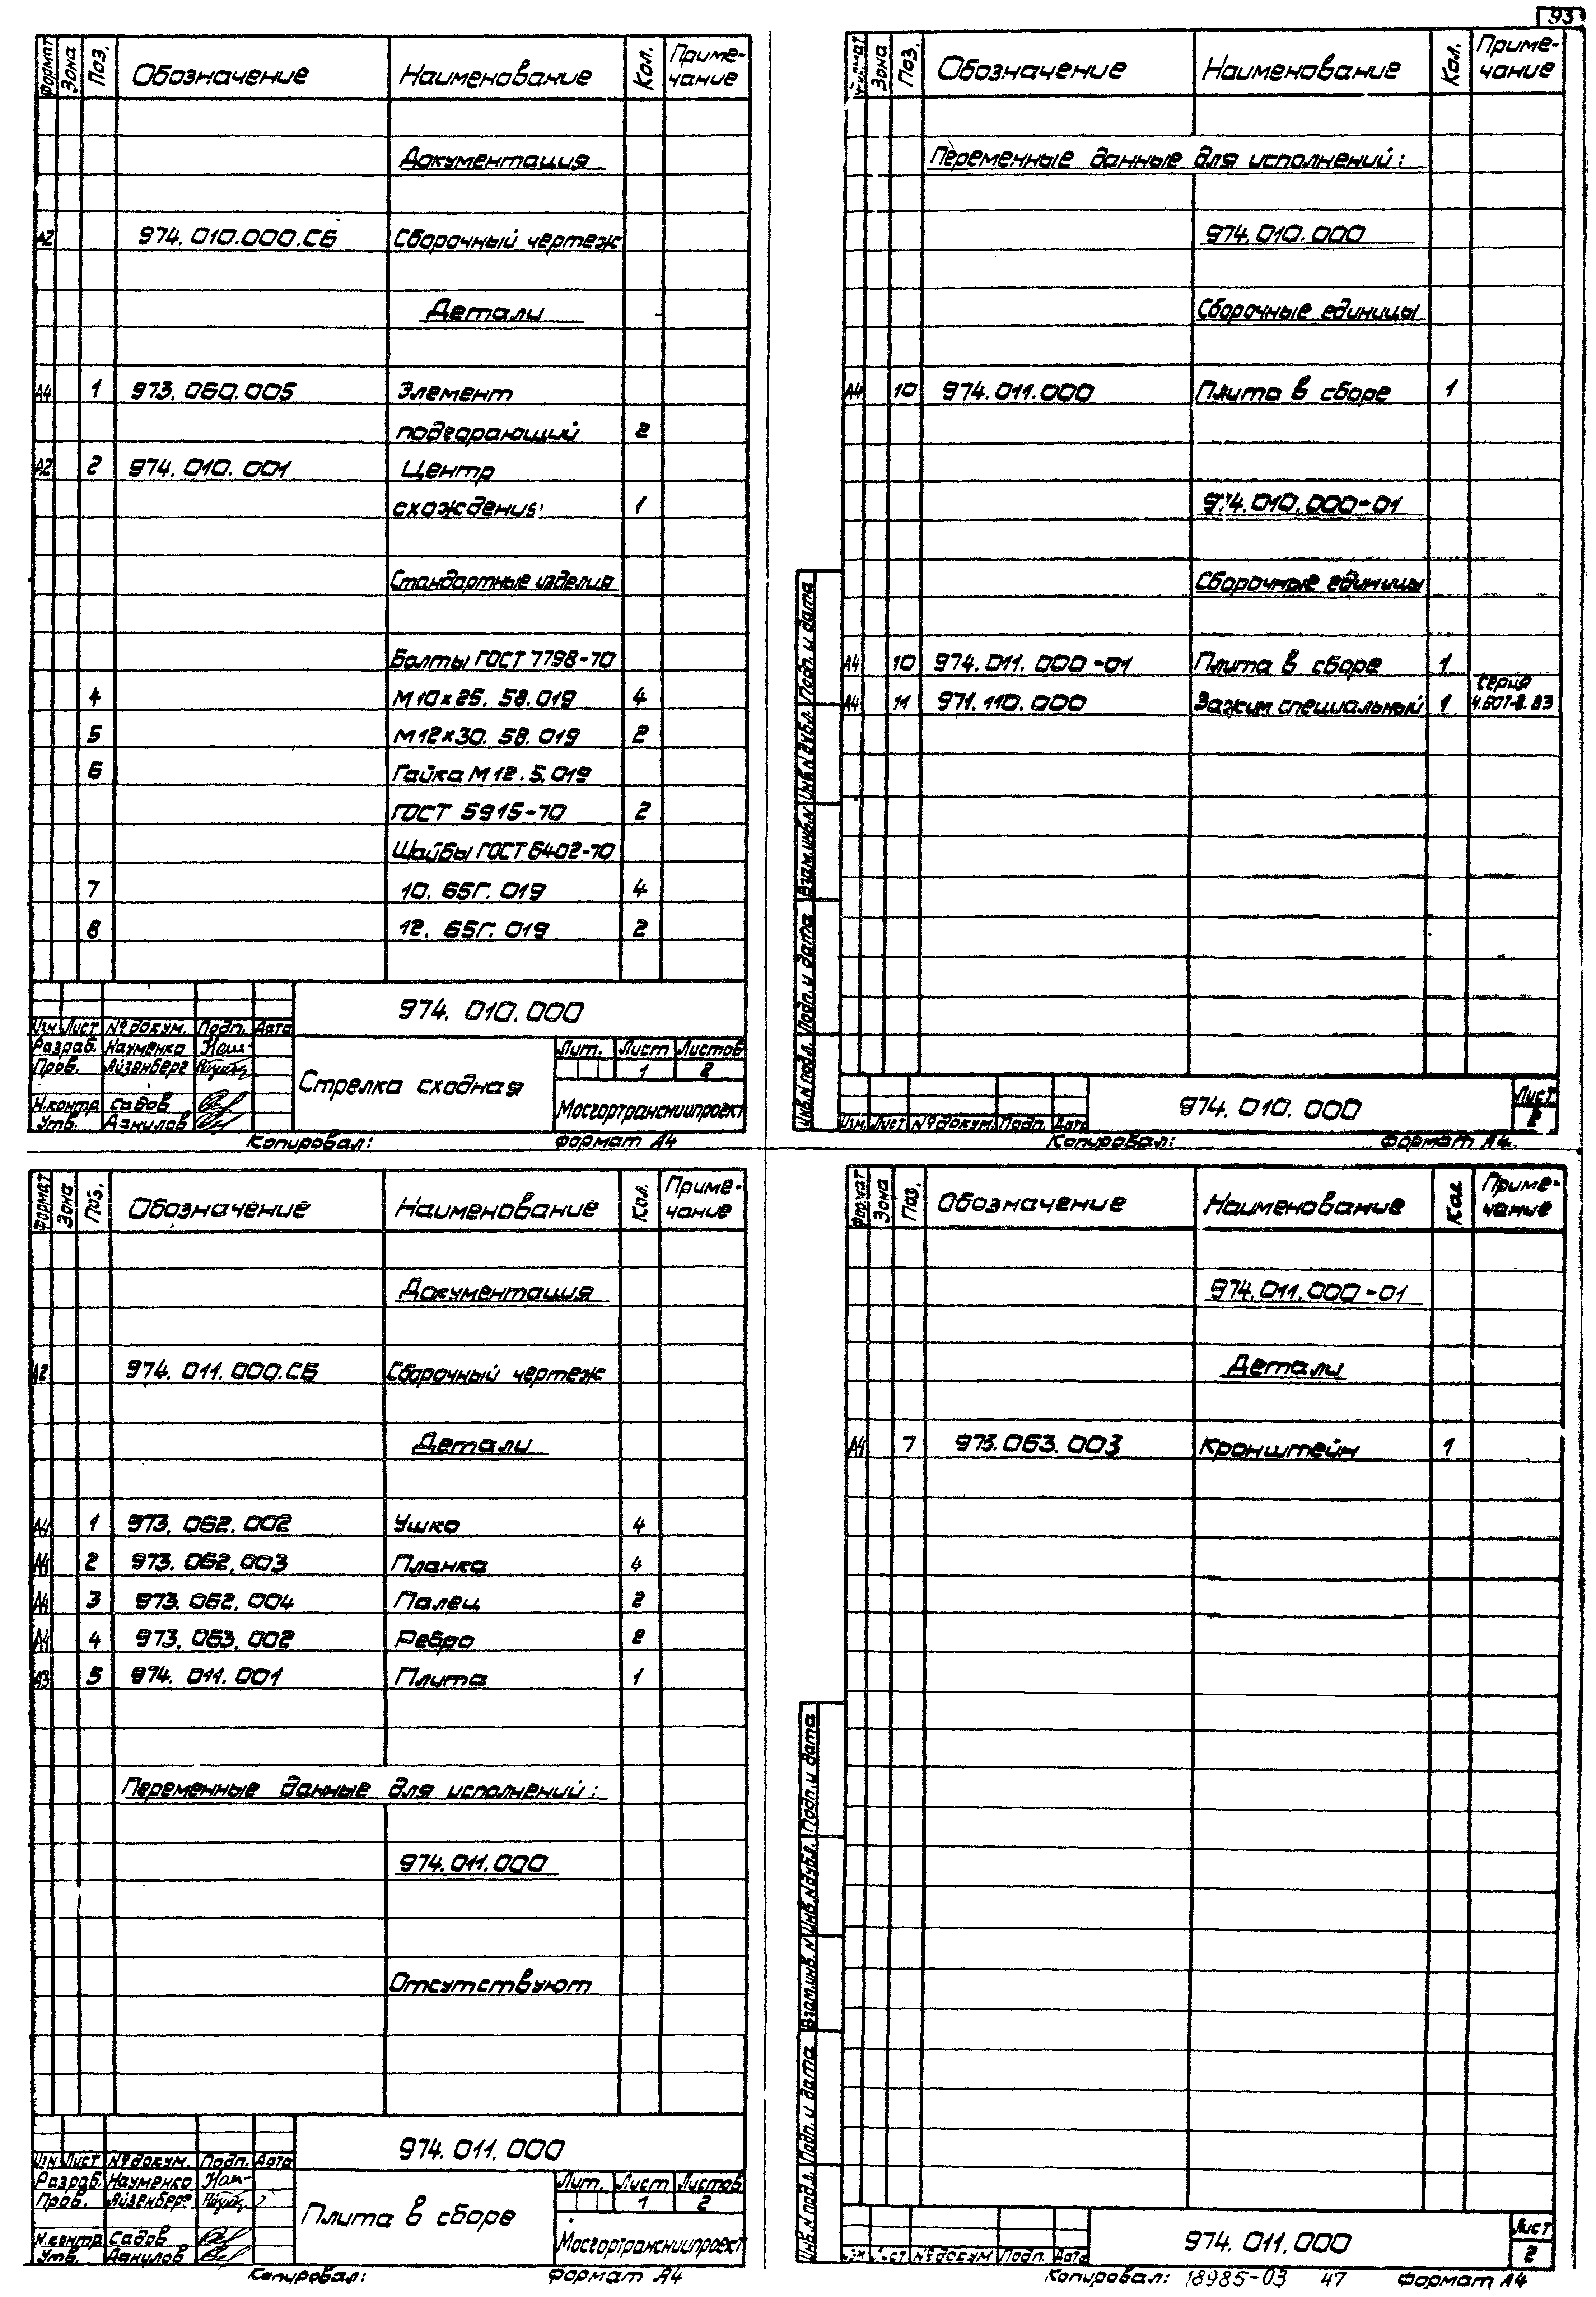 93
Формат Зона Поз. Обозначение Наименование Кол. Приме-
чание
Документация
А2 974.010.000.СБ Сборочный чертеж
Детали
А4 1 973.060.005 Элемент
подгорающий 2
А2 2 974.010.001 Центр
схождения 1
Стандартные изделия
Болты ГОСТ 7798-70
4 М10х25.58.019 4
5 М12х30.58.019 2
6 Гайка М12.5.019
ГОСТ 5915-70 2
Шайбы ГОСТ 6402-70
7 10.65Г.019 4
8 12.65Г.019 2
974.010.000
Изм Лист № докум. Подп. Дата
Разраб. Науменко
Пров. Айзенберг
Н.контр Садов
Утв. Данилов
Стрелка сходная
Лит. Лист Листов
1 2
Мосгортрансниипроект
Копировал: Формат А4
Формат Зона Поз. Обозначение Наименование Кол. Приме-
чание
Переменные данные для исполнений:
974.010.000
Сборочные единицы
А4 10 974.011.000 Плита в сборе 1
974.010.000-01
Сборочные единицы
А4 10 974.011.000-01 Плита в сборе 1
А4 11 971.110.000 Зажим специальный 1 Серия
4.507-8.83
Инв.N подл. Подп. и дата Взам.инв.N Инв.N дубл. Подп. и дата
Изм. Лист № докум. Подп. Дата
974.010.000
Лист
2
Копировал: Формат А4
Формат Зона Поз. Обозначение Наименование Кол. Приме-
чание
Документация
А2 974.011.000.СБ Сборочный чертеж
Детали
А4 1 973.062.002 Ушко 4
А4 2 973.062.003 Планка 4
А4 3 973.062.004 Палец 2
А4 4 973.063.002 Ребро 2
А3 5 974.011.001 Плита 1
Переменные данные для исполнений:
974.011.000
Отсутствуют
974.011.000
Изм Лист № докум. Подп. Дата
Разраб. Науменко
Пров. Айзенберг
Н.контр Садов
Утв. Данилов
Плита в сборе
Лит. Лист Листов
1 2
Мосгортрансниипроект
Копировал: Формат А4
Формат Зона Поз. Обозначение Наименование Кол. Приме-
чание
974.011.000-01
Детали
А4 7 973.063.003 Кронштейн 1
Инв.N подл. Подп. и дата Взам.инв.N Инв.N дубл. Подп. и дата
Изм Лист № докум Подп. Дата
974.011.000
Лист
2
Копировал: 18985-03 47 Формат А4